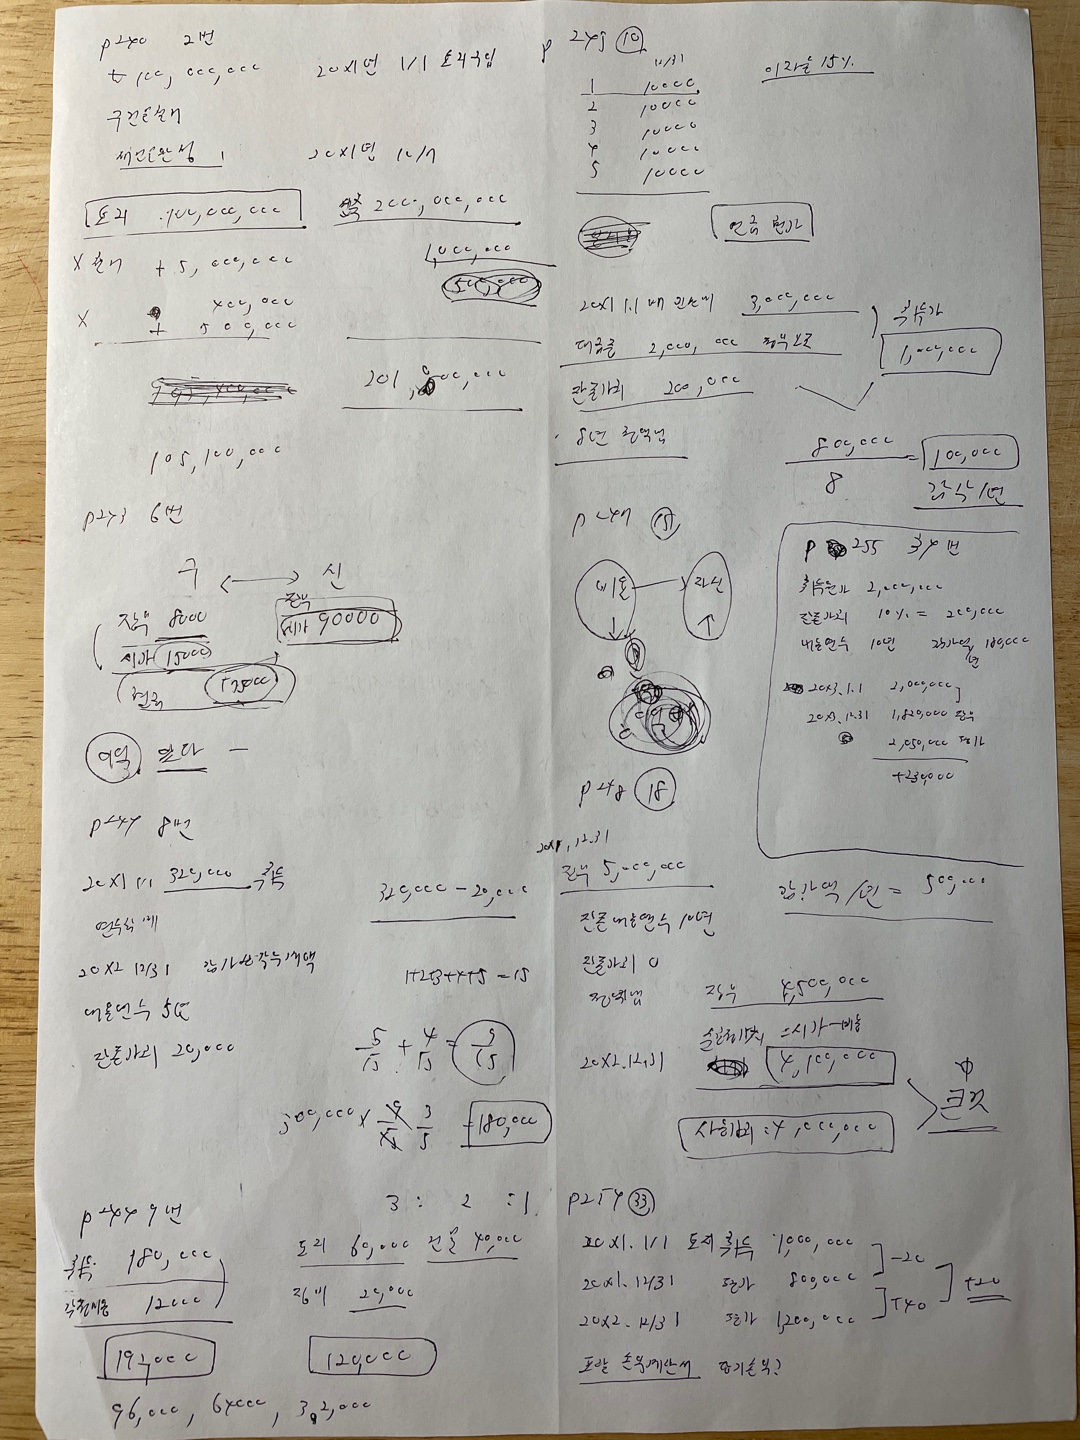 p240 2번
100,000,000 20X1년 1/1 토지구입
구건물철거
새건물완성 20X1년
토지 100,000,000
X 철거 + 5,000,000
400,000
X + 500,000
105,100,000
건축 2000,000,000
1,000,000
500,000
201,000,000
p243 6번
구 ↔ 신
장부 8000
시가 15000
현금
장부
시가 90000
이익 없다 —
p244 8번
20X1 1/1 320,000 취득
연수합계
20X2 12/31 감가상각누계액
내용연수 5년
잔존가치 20,000
320,000 - 20,000
1+2+3+4+5 = 15
5/15 + 4/15 = 9/15
300,000 × 9/15 3/5 = 180,000
p244 9번
취득 180,000
12000
192,000
96,000, 64000, 32,000
3 : 2 : 1
토지 60,000 건물 40,000
장비 20,000
120,000
p 245 10
12/31
1 10000
2 10000
3 10000
4 10000
5 10000
이자율 15%
연금 현가
20X1 1.1 3,000,000
대금중 2,000,000 정부보조
잔존가치 200,000
8년 정액법
취득가
1,000,000
800,000 / 8 = 100,000
감가/년
p 247 15
비용 → 자산
p248 18
20X1, 12.31
장부 5,000,000
잔존내용연수 10년
잔존가치 0
정액법
감가액/년 = 500,000
장부 4,500,000
순공정가치 = 시가 - 비용
20X2.12.31
4,100,000
사용가치 = 4,000,000
큰것
p254 33
20X1. 1/1 토지 취득 1,000,000
20X1. 12/31 평가 800,000
20X2. 12/31 평가 1,200,000
-20
+40
+20
포괄 손익계산서 당기손익?
p 255 34번
취득원가 2,000,000
잔존가치 10% = 200,000
내용연수 10년 감가액/년 180,000
20X3.1.1 2,000,000
20X3.12.31 1,820,000 장부
2,050,000 평가
+230,000